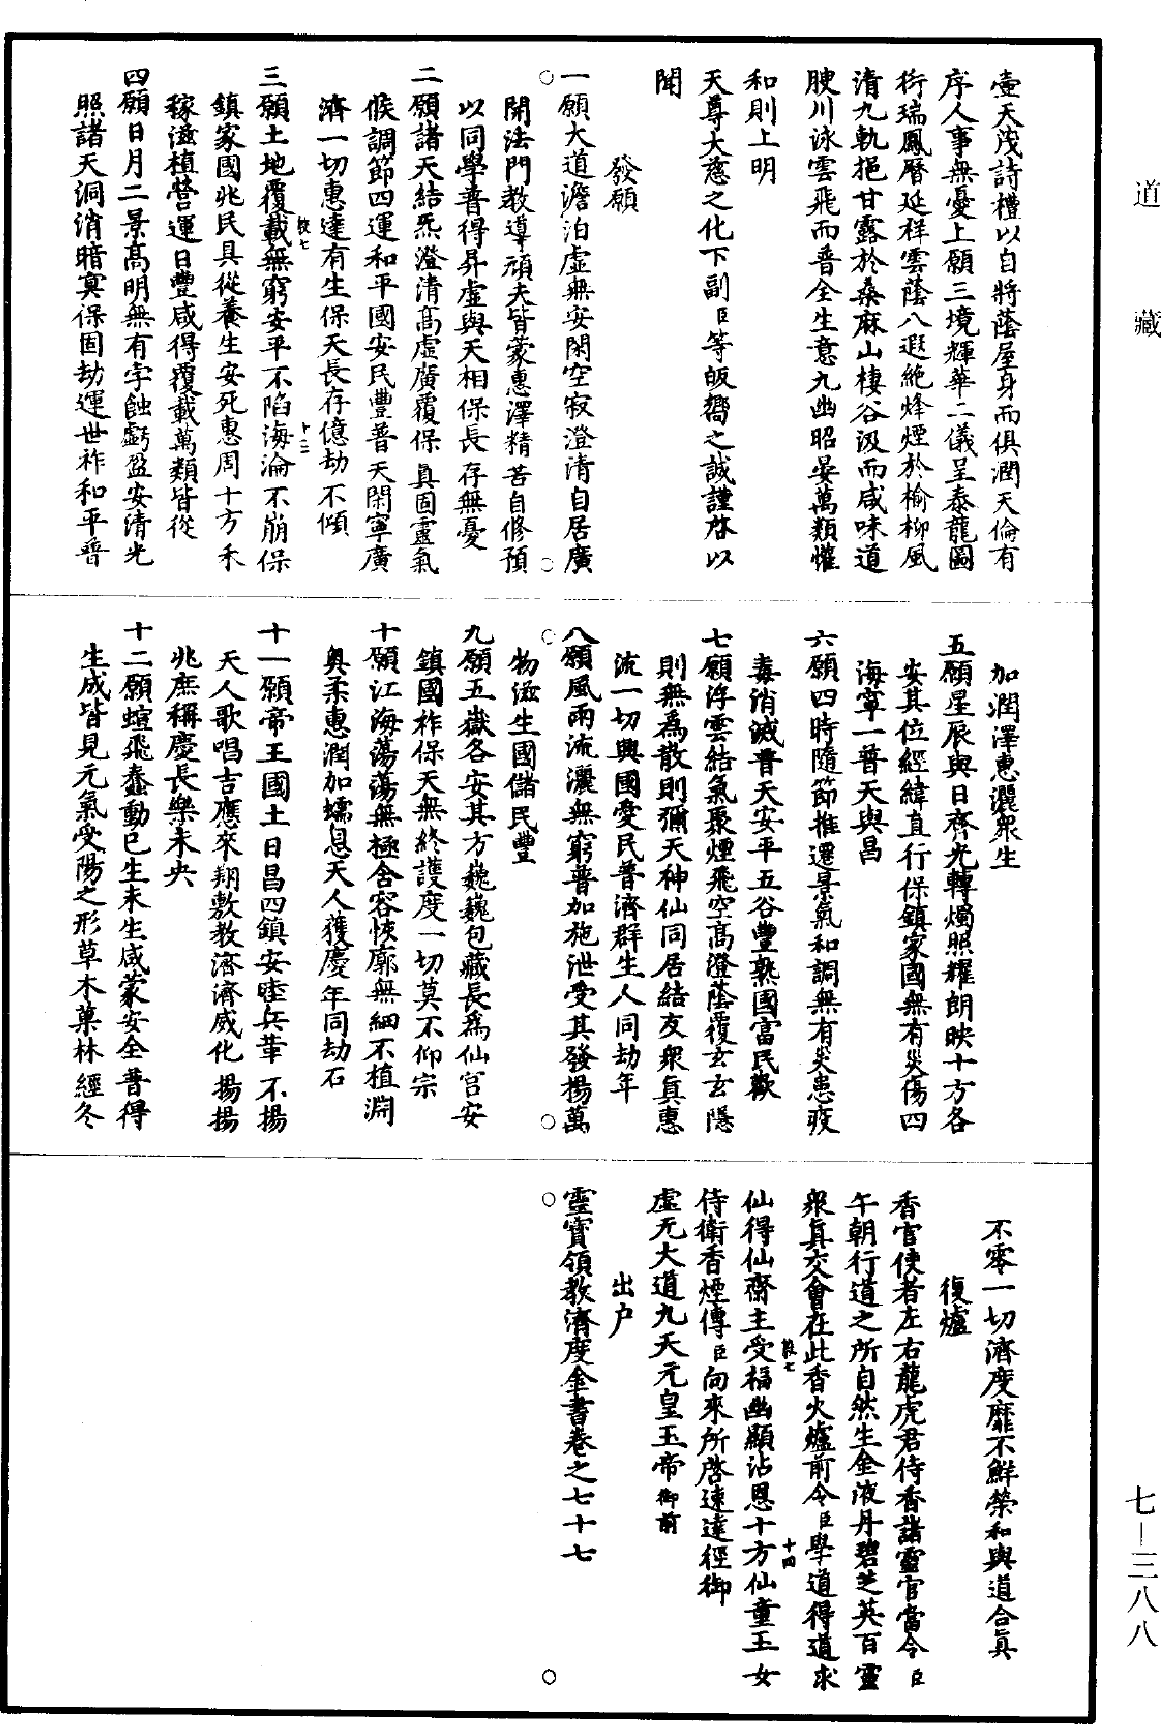 道藏
壺天茂詩禮以自將蔭屋身而俱潤天倫有
序人事無憂上願三境輝華二儀呈泰龍圖
衍瑞鳳曆延祥雲蔭八遐絶烽煙於榆柳風
清九軌挹甘露於桑麻山棲谷汲而咸味道
腴川泳雲飛而普全生意九幽昭晏萬類懽
和則上明
天尊大慈之化下副臣等皈嚮之誠謹啓以
聞
發願
一願大道澹泊虛無安閑空寂澄清自居廣
開法門教導頑夫皆蒙惠澤精苦自修預
以同學普得昇虛與天相保長存無憂
二願諸天結炁澄清高虛廣覆保真固靈氣
候調節四運和平國安民豐普天閑寧廣
濟一切惠達有生保天長存億劫不傾
三願土地覆載無窮安平不陷海淪不崩保
鎮家國兆民具從養生安死惠周十方禾
稼滋植營運日豐咸得覆載萬類皆從
四願日月二景高明無有孛蝕虧盈安清光
照諸天洞消暗冥保固劫運世祚和平普
加潤澤惠灑衆生
五願星辰與日齊光轉燭照耀朗映十方各
安其位經緯直行保鎮家國無有災傷四
海寧一普天與昌
六願四時隨節推遷景氣和調無有災患疫
毒消滅普天安平五谷豐熟國富民歡
七願浮雲結氣聚煙飛空高澄蔭覆玄玄隱
則無爲散則彌天神仙同居結友衆真惠
流一切興國愛民普濟群生人同劫年
八願風雨流灑無窮普加施泄受其發揚萬
物滋生國儲民豐
九願五嶽各安其方巍巍包藏長爲仙宫安
鎮國祚保天無終護度一切莫不仰宗
十願江海蕩蕩無極含容恢廓無細不植淵
奥柔惠潤加蠕息天人獲慶年同劫石
十一願帝王國土日昌四鎮安睦兵革不揚
天人歌唱吉應來翔敷教濟濟威化揚揚
兆庶稱慶長樂未央
十二願蝖飛蠢動已生未生咸蒙安全普得
生成皆見元氣受陽之形草木菓林經冬
不零一切濟度靡不鮮榮和與道合真
復爐
香官使者左右龍虎君侍香諸靈官當令臣
午朝行道之所自然生金液丹碧芝英百靈
衆真交會在此香火爐前令臣學道得道求
仙得仙齋主受福幽顯沾恩十方仙童玉女
侍衛香煙傳臣向來所啓速達徑御
虛无大道九天元皇玉帝御前
出户
靈寶領教濟度金書卷之七十七
七—三八八